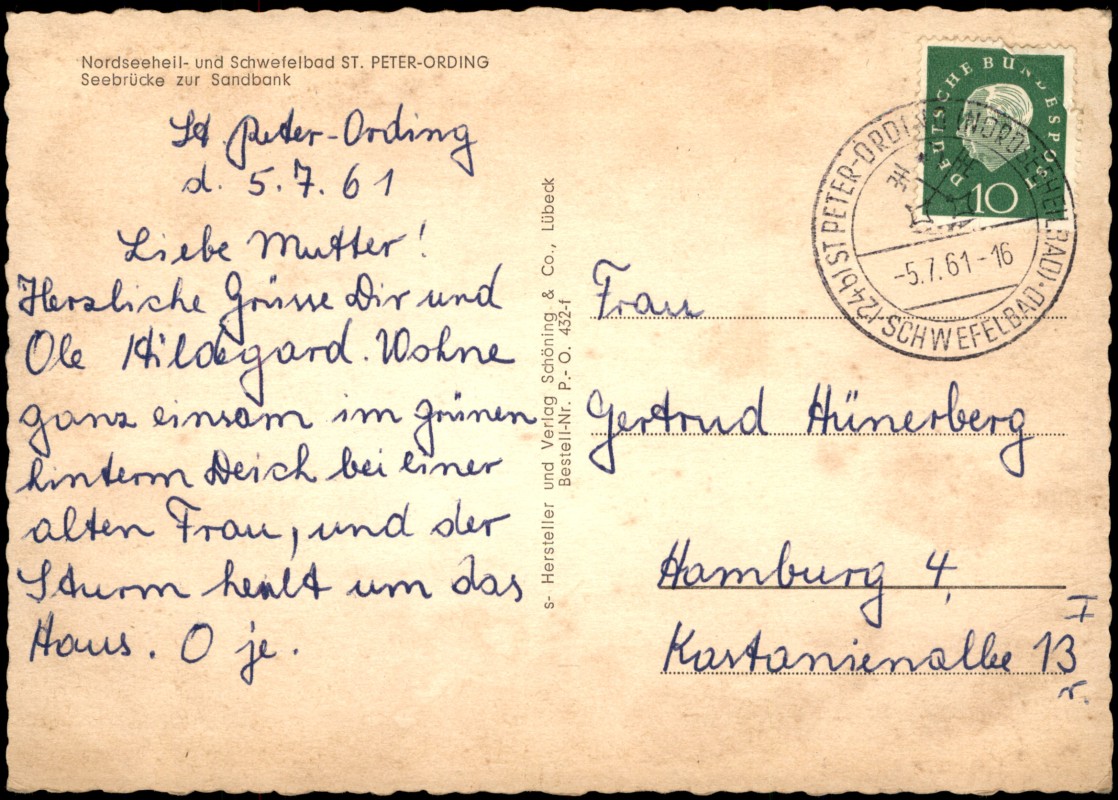 Nordseeheil- und Schwefelbad ST. PETER-ORDING
Seebrücke zur Sandbank
St. Peter-Ording
d. 5.7.61
Liebe Mutter!
Herzliche Grüsse Dir und
Ole Hildegard. Wohne
ganz einsam im grünen
hinterm Deich bei einer
alten Frau, und der
Sturm heult um das
Haus. O je.
s- Hersteller und Verlag Schöning & Co., Lübeck
Bestell-Nr. P.- O. 432-f
DEUTSCHE BUNDESPOST
10
(24b) ST PETER-ORDING (NORDSEEHEILBAD)
-5.7.61-16
SCHWEFELBAD
Frau
Gertrud Hünerberg
Hamburg 4,
Kastanienallee 13 I
r.